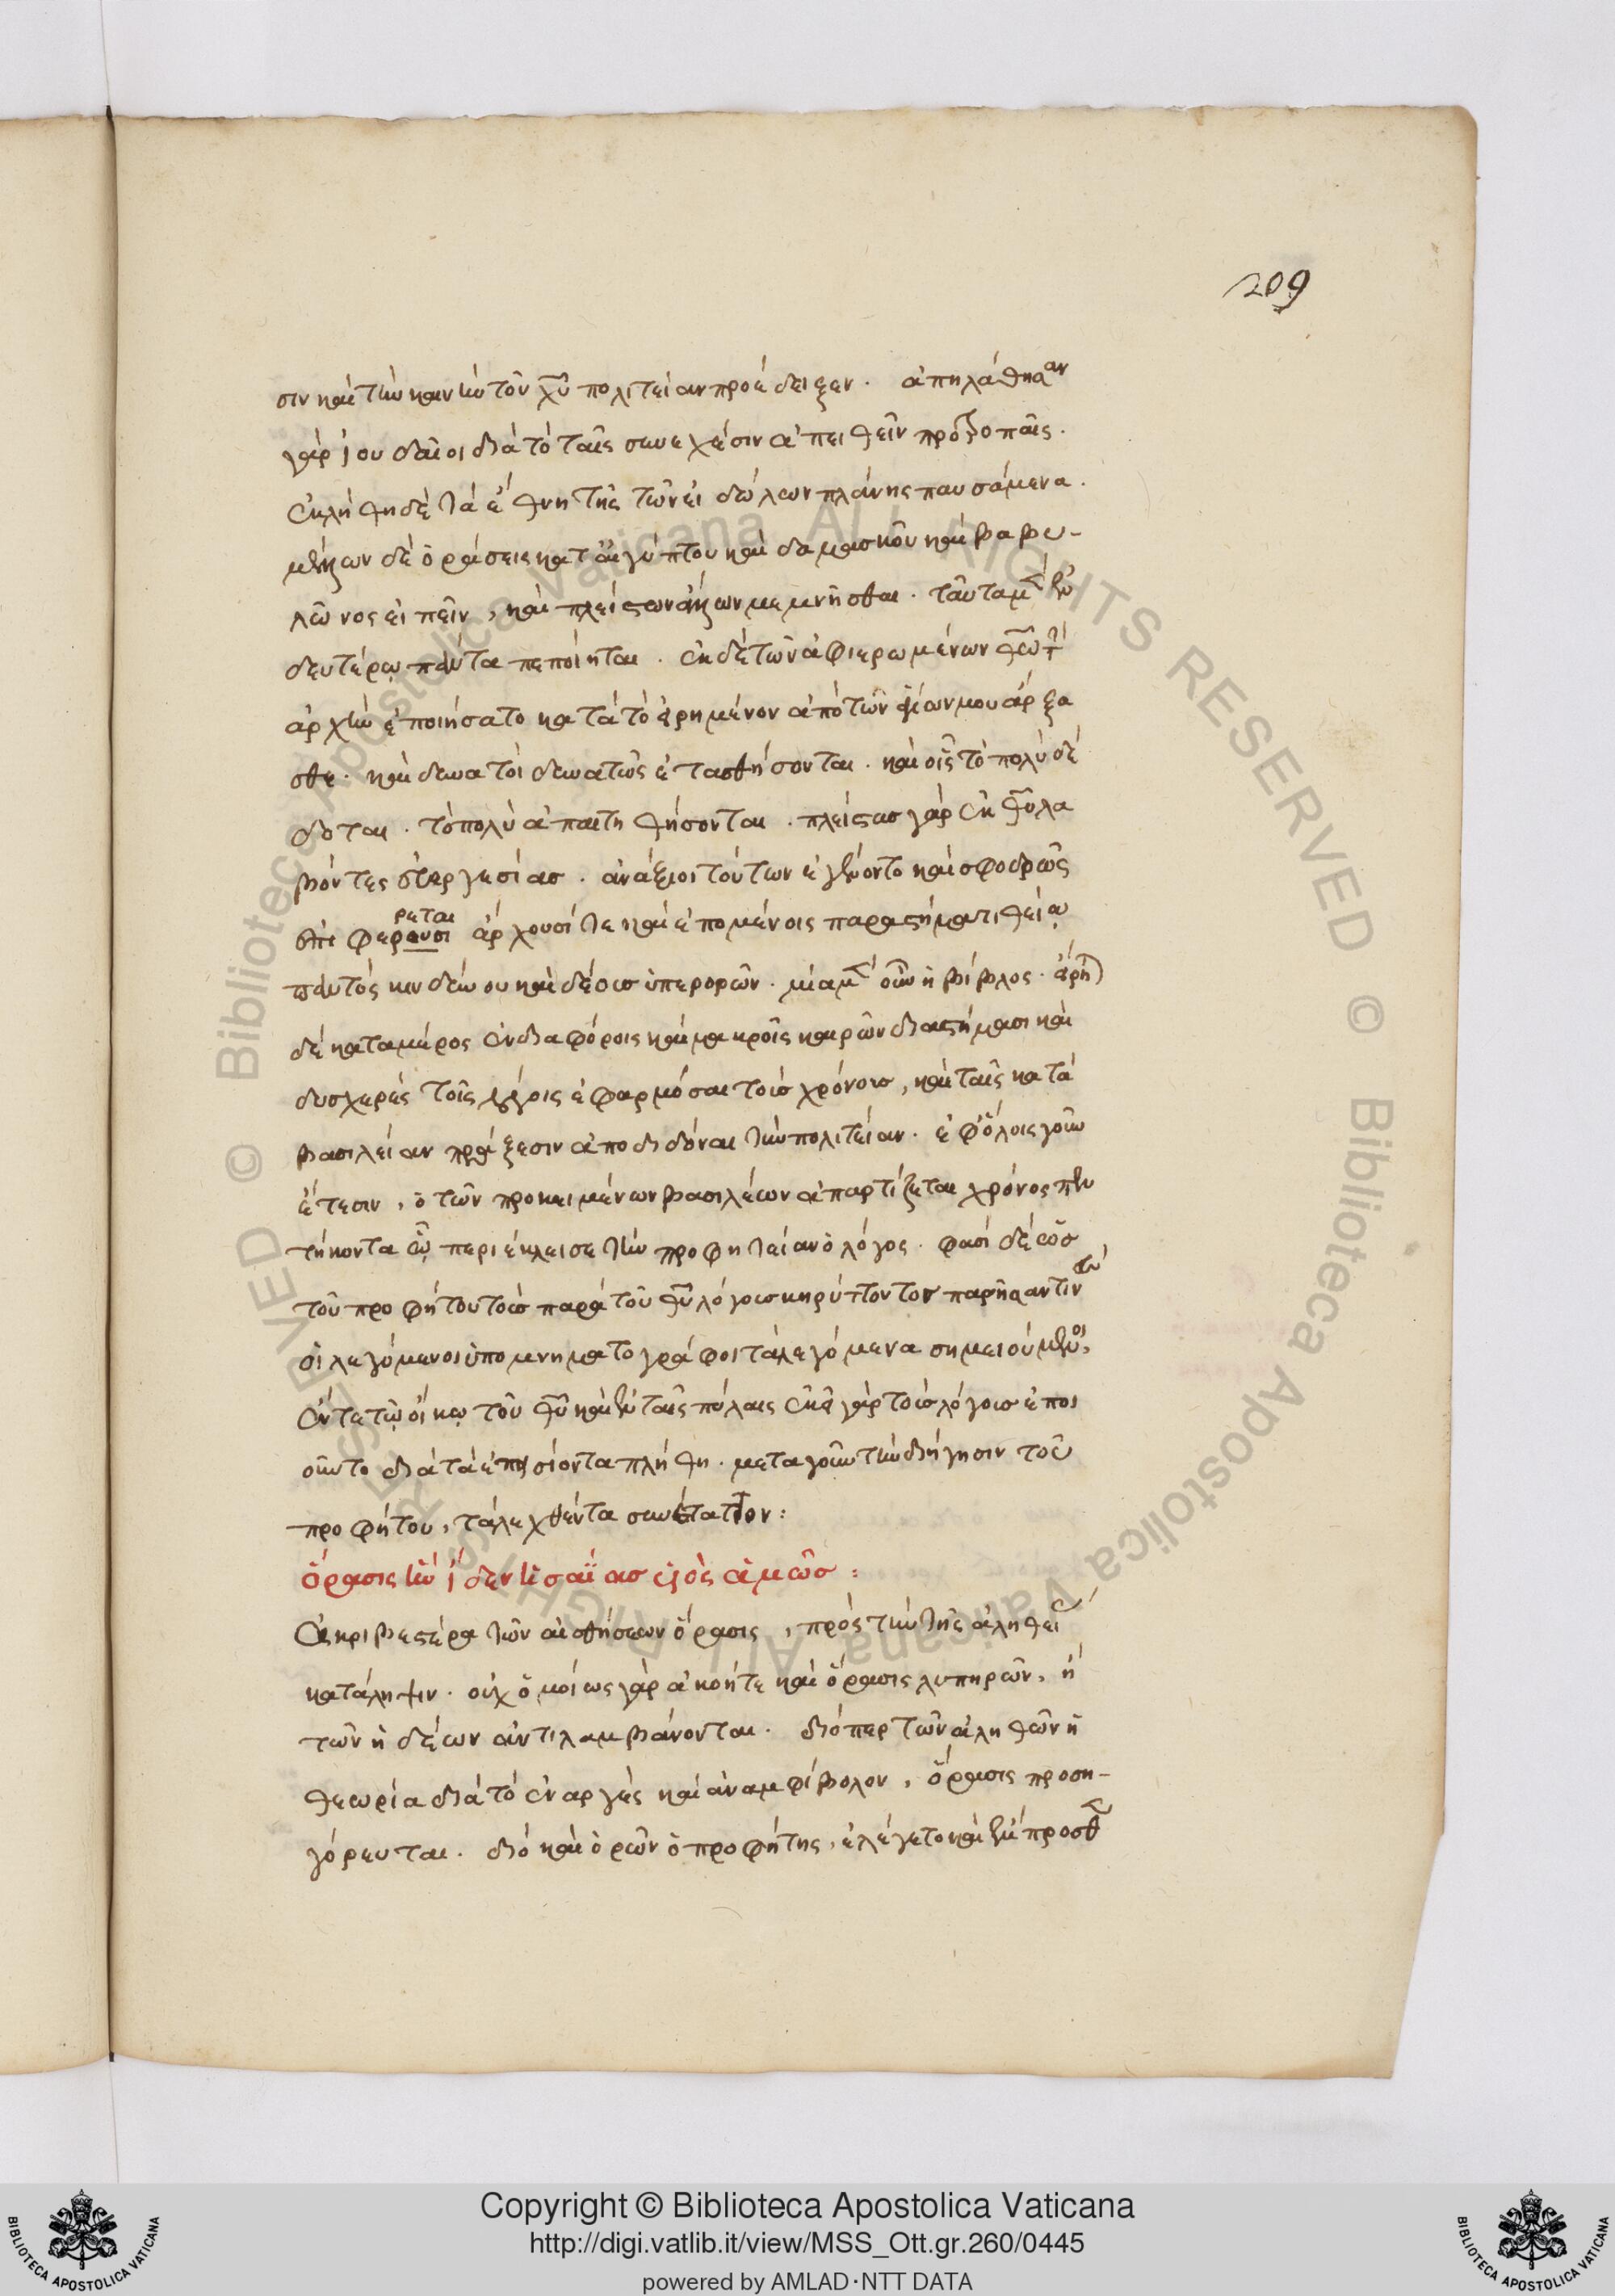 209
σιν καὶ τὴν καινὴν τοῦ χῦ πολιτείαν προέδειξεν. ἀπηλάθησαν
γὰρ ἰουδαῖοι διὰ τὸ ταῖς συνεχέσιν ἀπειθεῖν προτροπαῖς.
ἐκλήθη δὲ τὰ ἔθνη τῆς τῶν εἰδώλων πλάνης παυσάμενα.
μέλλων δὲ ὁράσεις κατ αἰγύπτου καὶ δαμασκοῦ καὶ βαβυ-
λῶνος εἰπεῖν, καὶ πλείστων ἄλλων μεμνῆσθαι. ταῦτα μὲν ἐν
δευτέρω πάντα πεποίηται. ἐκ δὲ τῶν ἀφιερωμένων θεῶ τὴν
ἀρχὴν ἐποιήσατο κατὰ τὸ εἰρημένον ἀπὸ τῶν ἁγίων μου ἄρξα
σθε. καὶ δυνατοὶ δυνατῶς ἐτασθήσονται. καὶ οἷς τὸ πολὺ δέ
δοται. τὸ πολὺ ἀπαιτηθήσονται. πλείστας γὰρ ἐκ θῦ λα
βόντες εὐεργεσίας. ἀνάξιοι τούτων ἐγένοντο καὶ σφοδρῶς
ἐπιφέρουσι
ρεται
ἄρχουσί τε καὶ ἑπομένοις παραστήματι θείω
παντὸς κινδύνου καὶ δέους ὑπερορῶν. μία μὲν οὖν ἡ βίβλος. εἴρη
δὲ κατὰ μέρος ἐν διαφόροις καὶ μακροῖς καιρῶν διαστήμασι καὶ
δυσχερὲς τοῖς λόγοις ἐφαρμόσαι τοὺς χρόνους, καὶ ταῖς κατὰ
βασιλείαν πράξεσιν ἀποδιδόναι τὴν πολιτείαν. ἐφ ὅλοις γοῦν
ἔτεσιν, ὁ τῶν προκειμένων βασιλέων ἀπαρτίζεται χρόνος πεν
τήκοντα ᾧ περιέκλεισε τὴν προφητείαν ὁ λόγος. φασὶ δὲ ὡς
τοῦ προφήτου τοὺς παρὰ τοῦ θῦ λόγους κηρύττοντος παρῆσαν τινὲς
οἱ λεγόμενοι ὑπομνηματογράφοι τὰ λεγόμενα σημειούμενοι,
ἔν τε τῷ οἴκω τοῦ θῦ καὶ ἐν ταῖς πύλαις ἐκεῖ γὰρ τοὺς λόγους ἐποι
οῦντο διὰ τὰ ἐπεισιόντα πλήθη. μετὰ γοῦν τὴν διήγησιν τοῦ
προφήτου, τὰ λεχθέντα συνέταττον:
ὅρασις ἣν ἴδεν ἡσαΐας υἱὸς ἀμῶς:
Ἀκριβεστέρα τῶν αἰσθήσεων ὅρασις, πρὸς τὴν τῆς ἀληθείας
κατάληψιν. οὐχ ὁμοίως γὰρ ἀκοή τε καὶ ὅρασις λυπηρῶν, ἢ
τῶν ἡδέων ἀντιλαμβάνονται. διόπερ τῶν ἀληθῶν ἡ
θεωρία διὰ τὸ ἐναργὲς καὶ ἀναμφίβολον, ὅρασις προση-
γόρευται. διὸ καὶ ὁρῶν ὁ προφήτης, ἐλέγετο καὶ ἔμπροσθεν
Copyright © Biblioteca Apostolica Vaticana
http://digi.vatlib.it/view/MSS_Ott.gr.260/0445
powered by AMLAD·NTT DATA
BIBLIOTECA APOSTOLICA VATICANA
BIBLIOTECA APOSTOLICA VATICANA
© Biblioteca Apostolica Vaticana ALL RIGHTS RESERVED
© Biblioteca Apostolica Vaticana ALL RIGHTS RESERVED